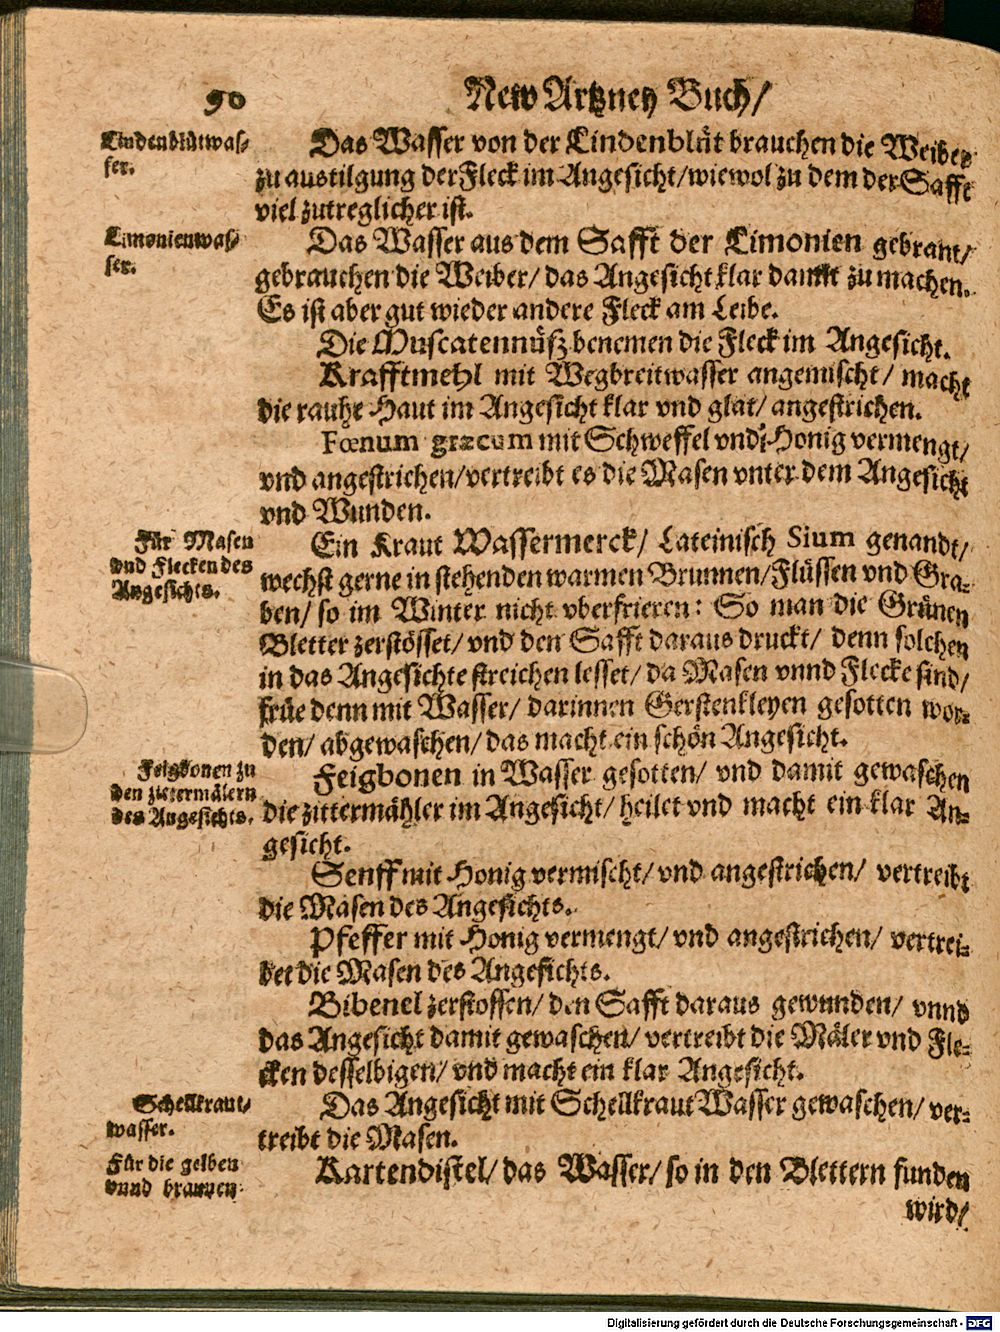 90
New Artzney Buch/
Lindenblütwas-
ser.
Das Wasser von der Lindenblüt brauchen die Weiber
zu austilgung der Fleck im Angesicht/ wiewol zu dem der Safft
viel zutreglicher ist.
Limonienwas-
ser.
Das Wasser aus dem Safft der Limonien gebrant/
gebrauchen die Weiber/ das Angesicht klar damit zu machen.
Es ist aber gut wieder andere Fleck am Leibe.
Die Muscatennüß benemen die Fleck im Angesicht.
Krafftmehl mit Wegbreitwasser angemischt/ macht
die rauhe Haut im Angesicht klar vnd glat/ angestrichen.
Fœnum græcum mit Schweffel vnd Honig vermengt/
vnd angestrichen/ vertreibt es die Masen vnter dem Angesicht
vnd Wunden.
Für Masen
vnd Flecken des
Angesichts.
Ein Kraut Wassermerck/ Lateinisch Sium genandt/
wechst gerne in stehenden warmen Brunnen/ Flüssen vnd Gra-
ben/ so im Winter nicht vberfrieren: So man die Grünen
Bletter zerstösset/ vnd den Safft daraus druckt/ denn solchen
in das Angesichte streichen lesset/ da Masen vnnd Flecke sind/
früe denn mit Wasser/ darinnen Gerstenkleyen gesotten wor-
den/ abgewaschen/ das macht ein schön Angesicht.
Feigbonen zu
den zittermälern
des Angesichts.
Feigbonen in Wasser gesotten/ vnd damit gewaschen
die zittermähler im Angesicht/ heilet vnd macht ein klar An-
gesicht.
Senff mit Honig vermischt/ vnd angestrichen/ vertreibt
die Masen des Angesichts.
Pfeffer mit Honig vermengt/ vnd angestrichen/ vertrei-
bet die Masen des Angesichts.
Bibenel zerstossen/ den Safft daraus gewunden/ vnnd
das Angesicht damit gewaschen/ vertreibt die Mäler vnd Fle-
cken desselbigen/ vnd macht ein klar Angesicht.
Schellkraut/
wasser.
Das Angesicht mit Schellkraut Wasser gewaschen/ ver-
treibt die Masen.
Für die gelben
vnnd braunen
Kartendistel/ das Wasser/ so in den Blettern funden
wird/
Digitalisierung gefördert durch die Deutsche Forschungsgemeinschaft - DFG